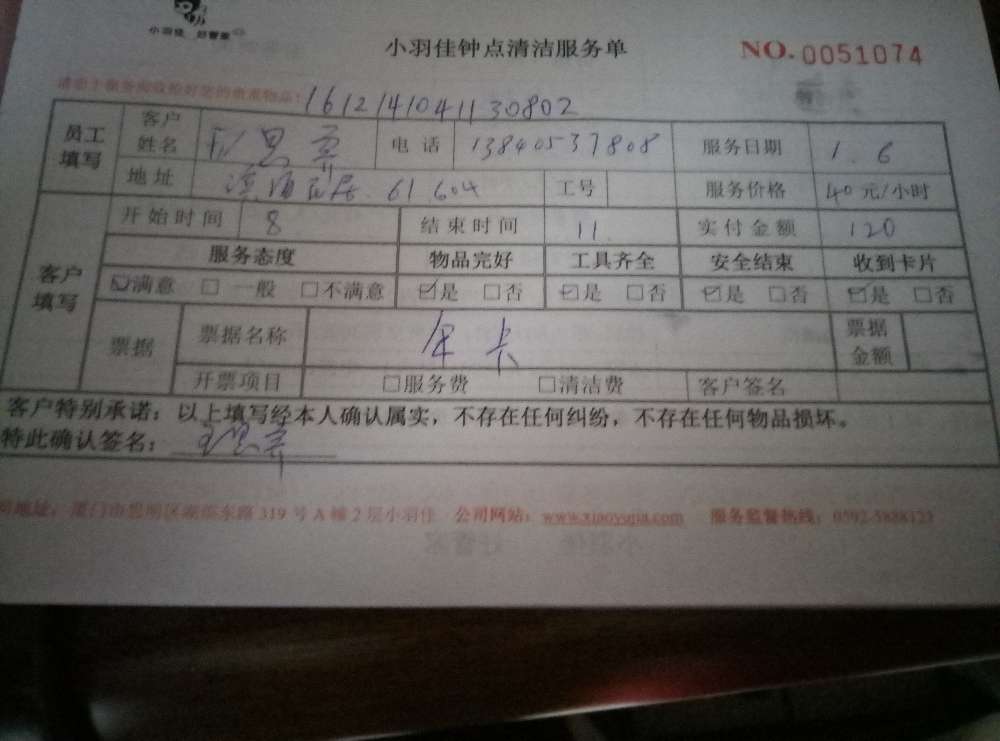 小羽佳 好管家
小羽佳钟点清洁服务单 NO. 0051074
请您于服务前收拾好您的贵重物品: 1612141041130802
员工填写 客户姓名 电话 13840537808 服务日期 1.6
地址 61.604 工号 服务价格 40元/小时
客户填写 开始时间 8 结束时间 11 实付金额 120
服务态度 物品完好 工具齐全 安全结束 收到卡片
☑满意 □一般 □不满意 ☑是 □否 ☑是 □否 ☑是 □否 ☑是 □否
票据 票据名称 年卡 票据金额
开票项目 □服务费 □清洁费 客户签名
客户特别承诺：以上填写经本人确认属实，不存在任何纠纷，不存在任何物品损坏。
特此确认签名：
地址：厦门市思明区 东路319号A幢2层小羽佳 公司网站：www.xiaoyujia.com 服务监督热线：0592-5888123